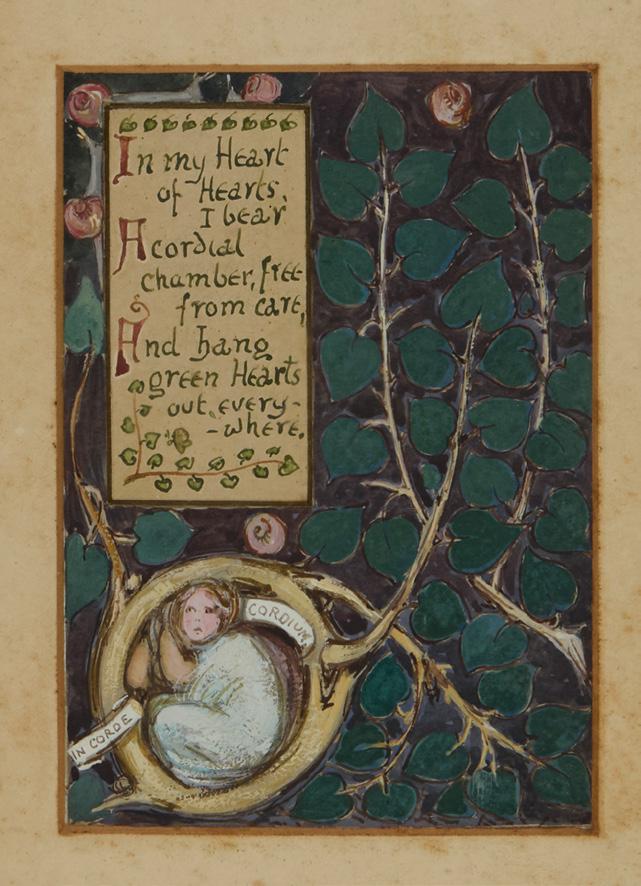 In my Heart
of Hearts,
I bear
A cordial
chamber, free
from care,
And hang
green Hearts
out, every-
-where.
CORDIUM
IN CORDE